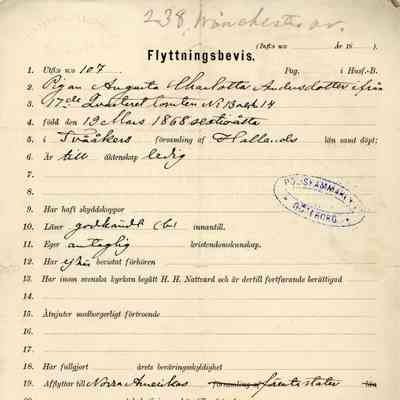 238, Winchester av.
(Inft: n:o År 18 ).
Flyttningsbevis.
1. Utfl: n:o 107 Pag. i Husf.-B.
2. Pigan Augusta Charlotta Andersdotter ifrån
3. 17de Qvarteret Tomten No 13 och 14
4. född den 19 Mars 1868 sextioåtta
5. i Tvååkers församling af Hallands län samt döpt:
6. Är till äktenskap ledig
7.
8.
9. Har haft skyddskoppor
10. Läser godkändt innantill.
11. Eger antaglig kristendomskunskap.
12. Har bevistat förhören
13. Har inom svenska kyrkan begått H. H. Nattvard och är dertill fortfarande berättigad
14.
15. Åtnjuter medborgerligt förtroende
16.
17.
18. Har fullgjort årets beväringsskyldighet
19. Afflyttar till Norra Amerikas församling af förenta stater län
POLISKAMMAREN
GÖTEBORG